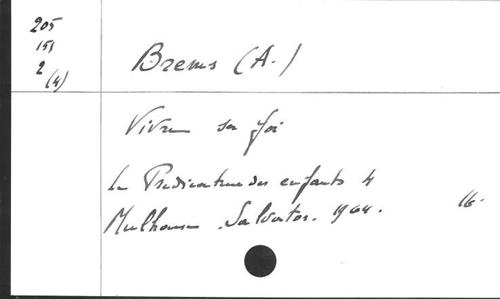 205
151
2
(4)
Brems (A.)
Vivre sa foi
La Prédication des enfants 4
Mulhouse. Salvator. 1964.
16.